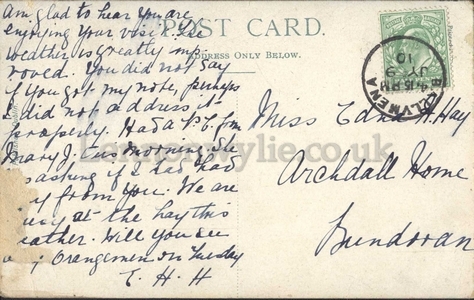 POST CARD.
ADDRESS ONLY BELOW.
Am glad to hear you are
enjoying your visit. The
weather is greatly imp
roved. You did not say
if you got my note, perhaps
I did not address it
properly. Had a P.C. from
Mary J. this morning. She
asking if I had had
from you. We are
at the hay this
weather. Will you see
any Orangemen on Tuesday
E. H. H
Miss Edna H. Hay
Archdall Home
Bundoran
BALLYMENA
4.15 PM
JY 9
10